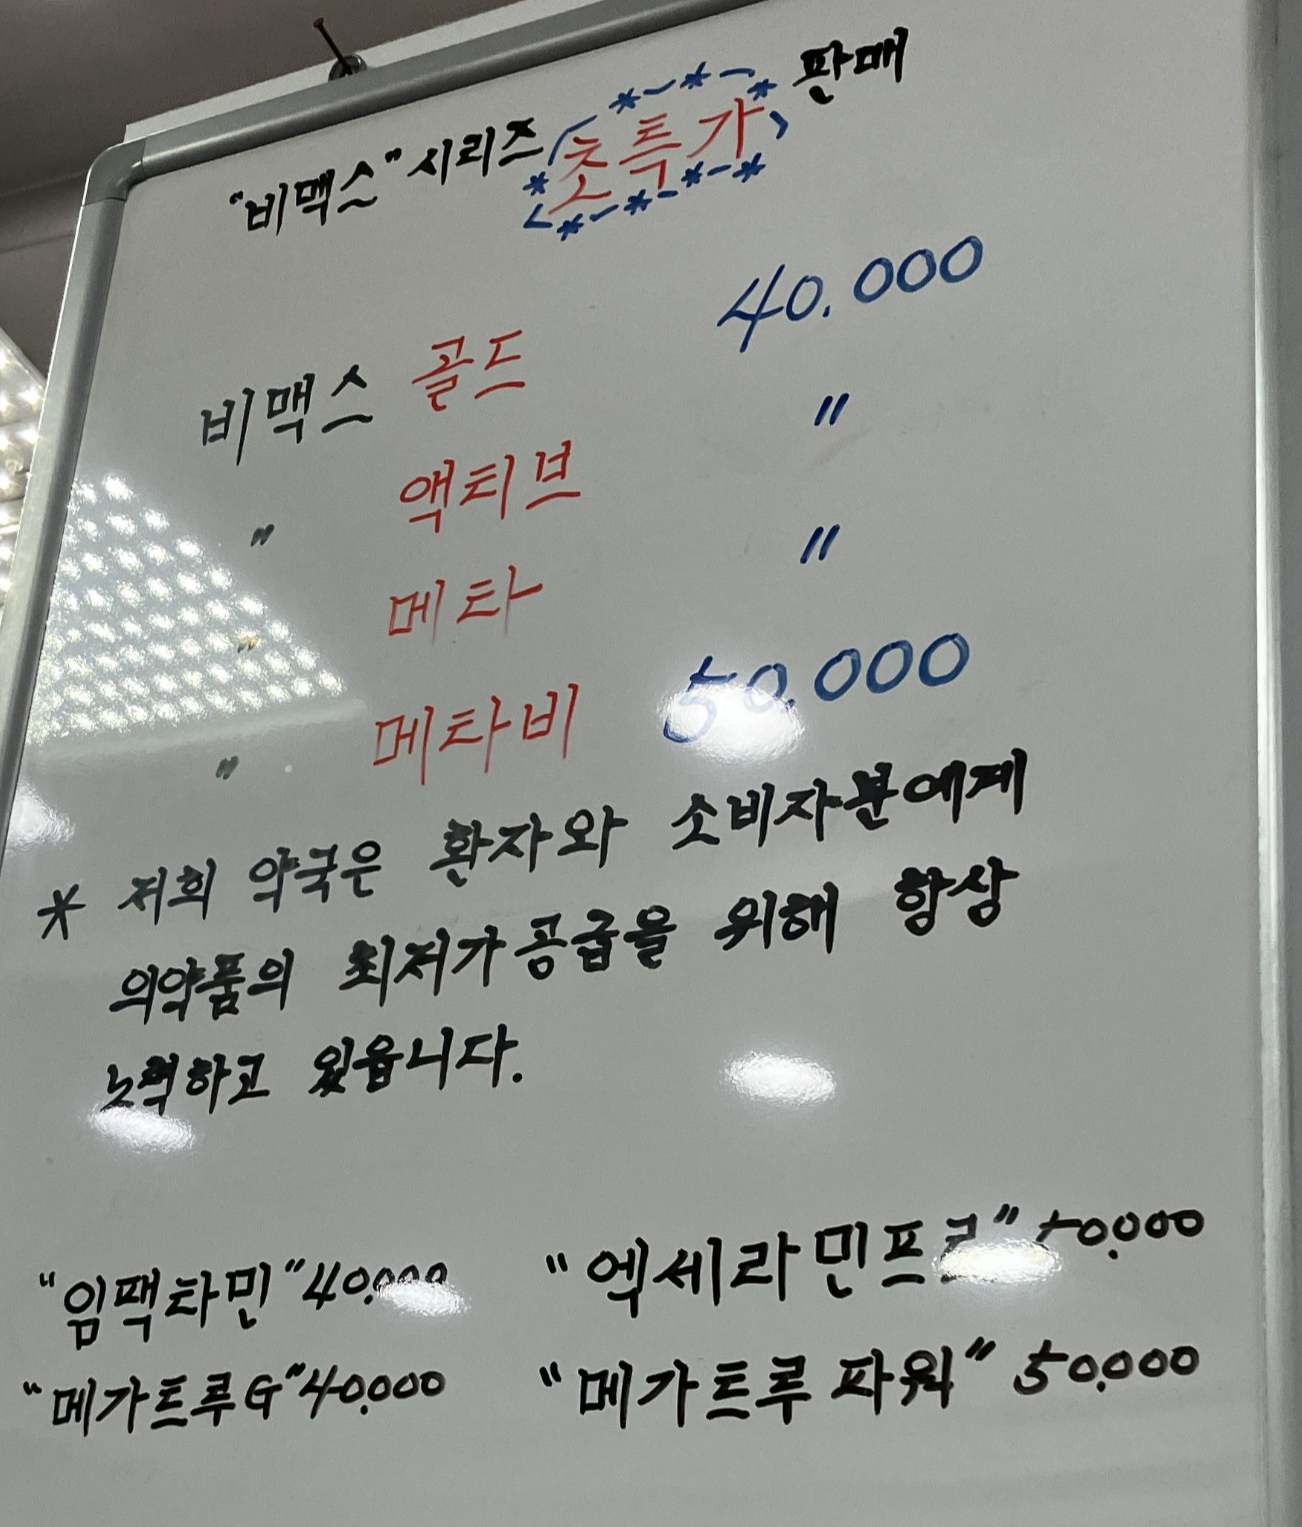 "비맥스" 시리즈 초특가 판매
비맥스 골드 40.000
〃 액티브 〃
〃 메타 〃
〃 메타비 50.000
* 저희 약국은 환자와 소비자분에게
의약품의 최저가 공급을 위해 항상
노력하고 있읍니다.
"임팩타민" 40.000 "엑세라민프로" 50.000
"메가트루G" 40.000 "메가트루 파워" 50.000